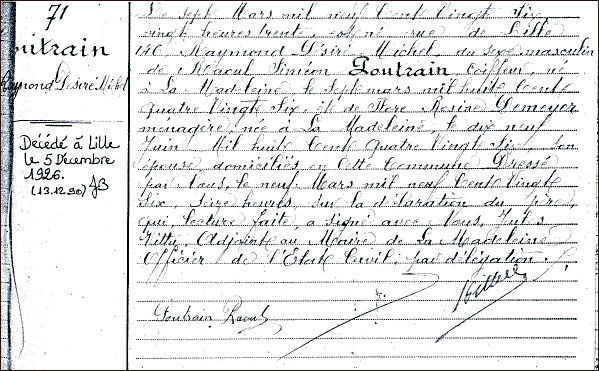 71
outrain
Raymond Désiré Michel
Décédé à Lille
le 5 Décembre
1926.
(13.12.90) JB
Le sept Mars mil neuf Cent Vingt Six
vingt heures trente, est né rue de Lille
140 Raymond Désiré Michel, du sexe masculin
de Raoul Siméon Poutrain Coiffeur, né
à La Madeleine, le sept mars mil huit Cent
quatre Vingt Six, et de Flore Rosine Demeyer
ménagère, née à La Madeleine, le dix neuf
Juin Mil huit Cent Quatre Vingt Six, son
épouse, domiciliés en Cette Commune Dressé
par Nous, le neuf Mars mil neuf Cent Vingt
Six, Seize heures, sur la déclaration du Père
qui, lecture faite, a signé avec Nous, Jules
Adjoint au Maire de La Madeleine
Officier de l'État Civil, par délégation.
Poutrain Raoul